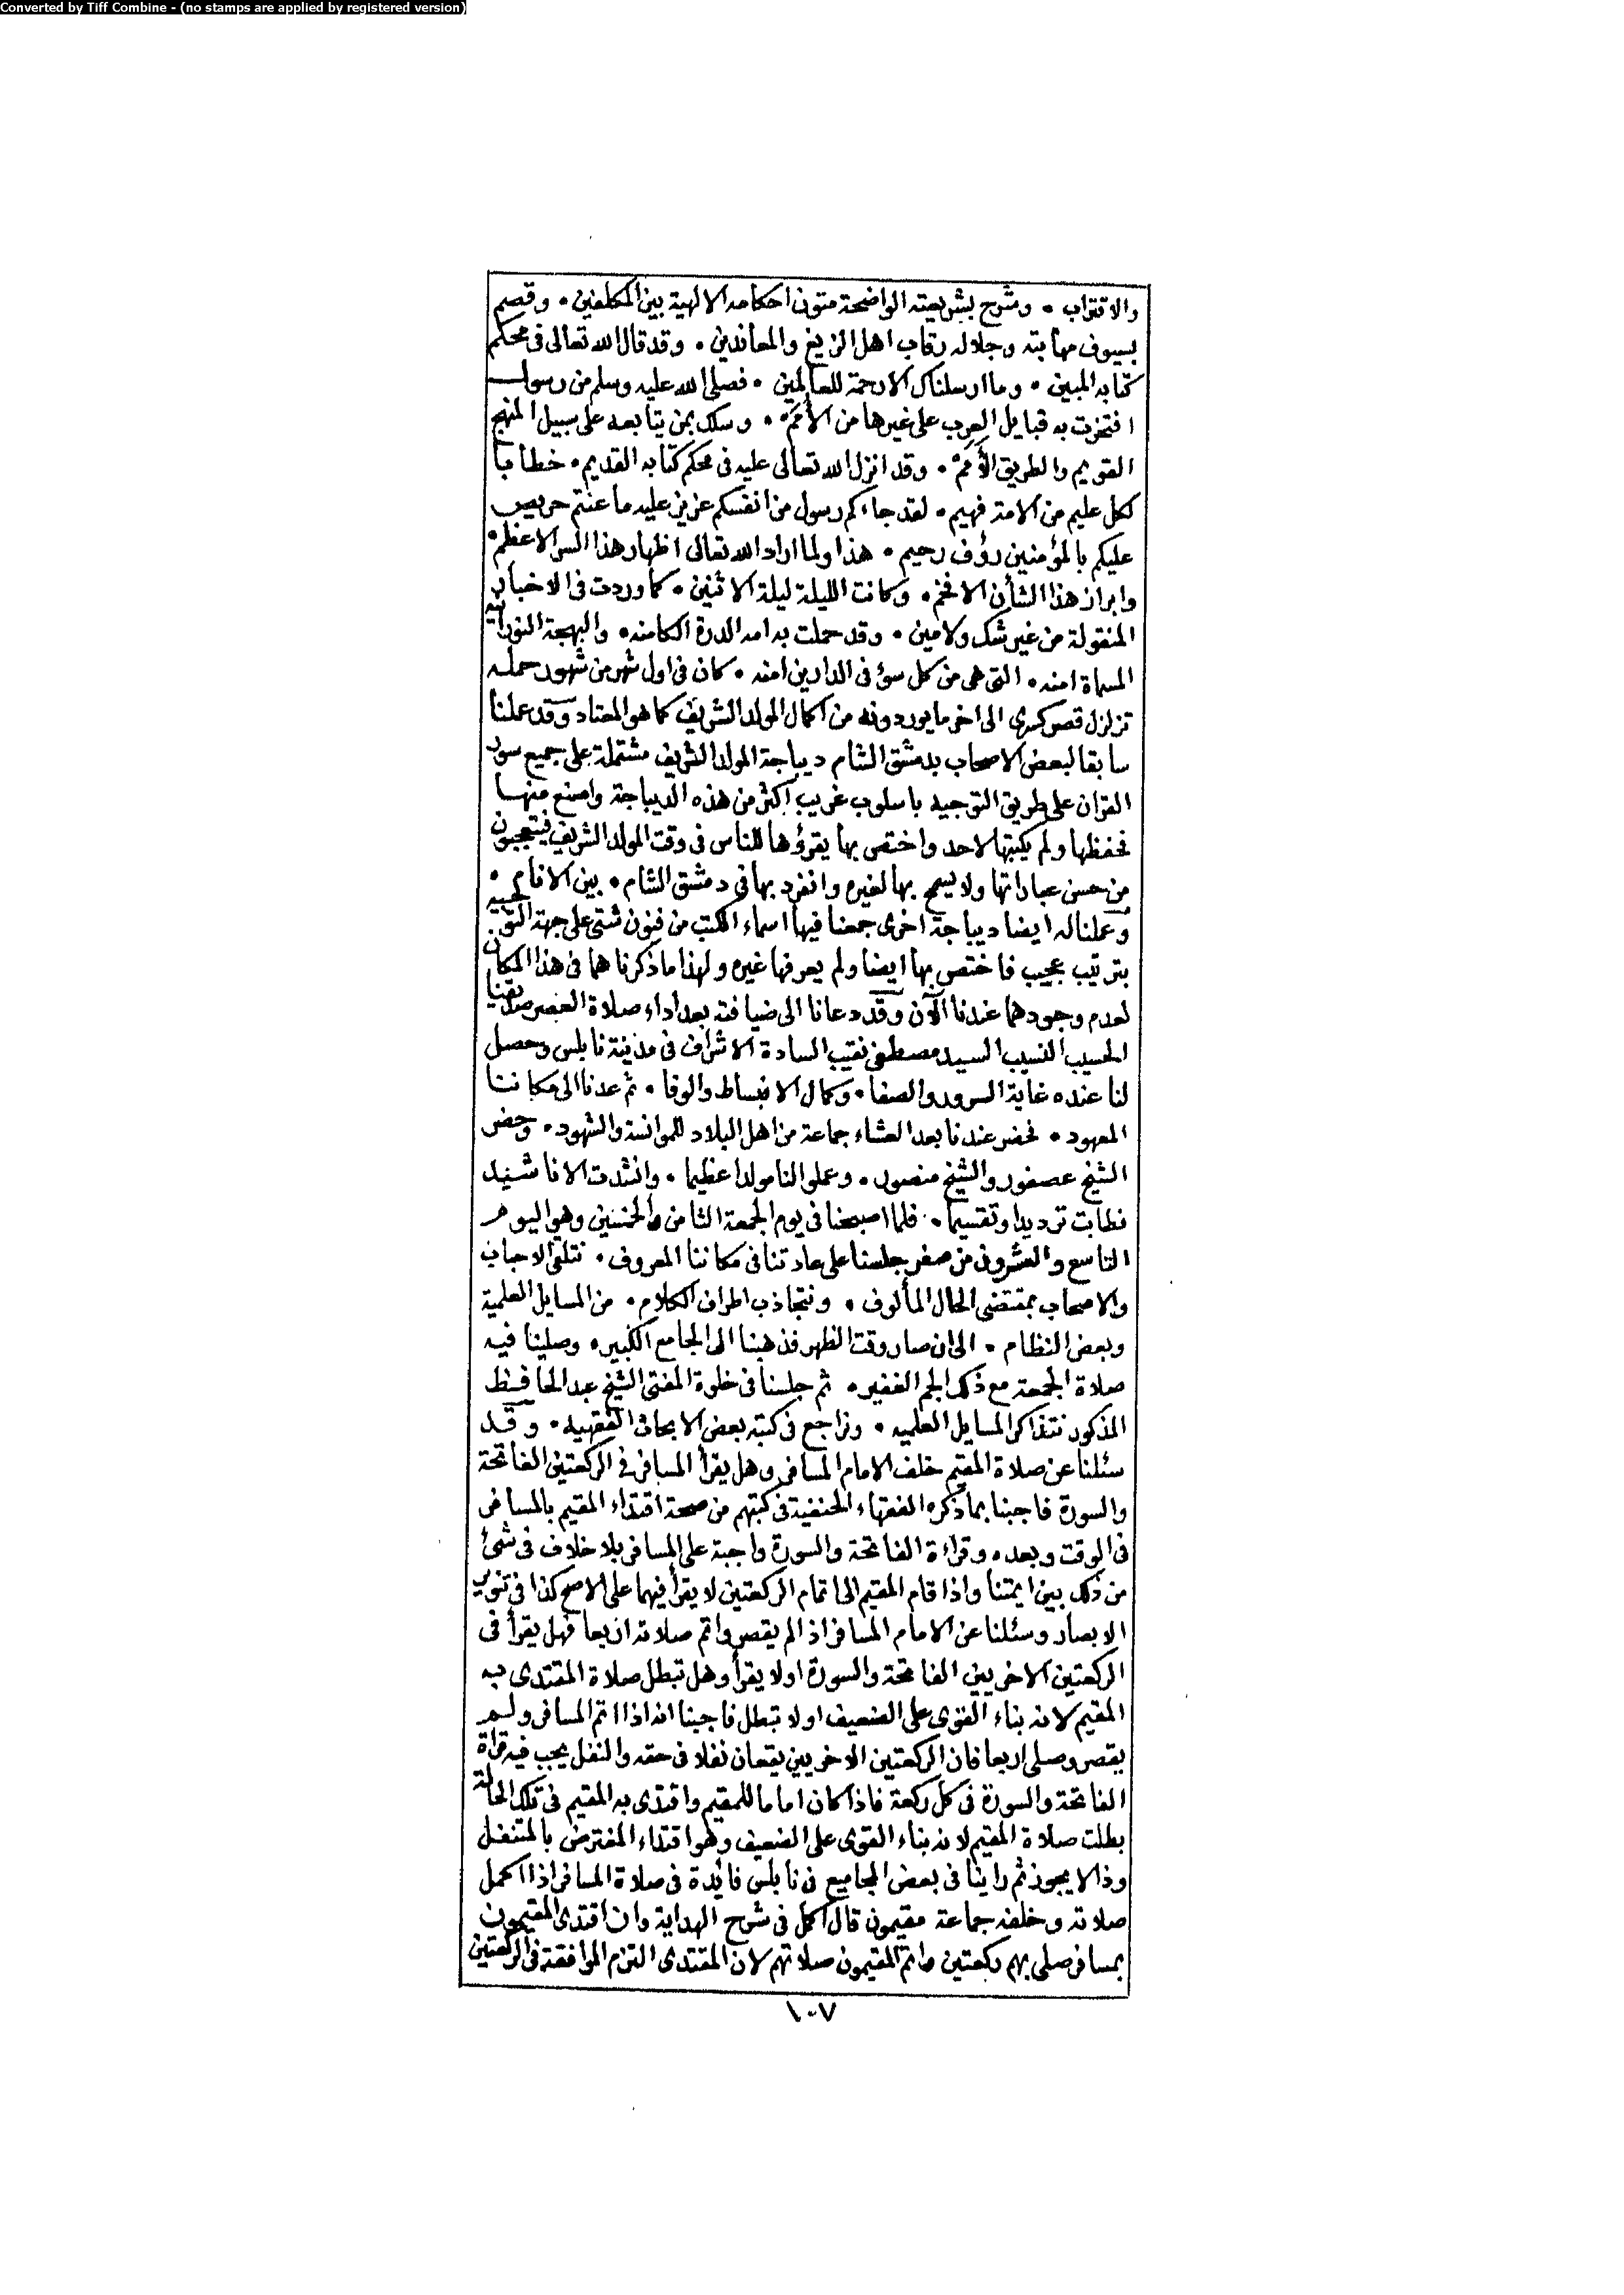 Converted by Tiff Combine - (no stamps are applied by registered version)
والاقتراب • وشرح بشريعته الواضحة متون احكامه الالهية بين المكلفين • وقصم
بسيوف مهابته وجلاله رقاب اهل الزيغ والمعاندين • وقد قال الله تعالى فى محكم
كتابه المبين • وما ارسلناك الا رحمة للعالمين • فصلى الله عليه وسلم من رسول
افتخرت به قبايل العرب على غيرها من الأُمَم • وسلك بمن يتابعه على سبيل المنهج
القويم والطريق الأَمَم • وقد انزل الله تعالى عليه فى محكم كتابه القديم • خطابا
لكل عليم من الامة فهيم • لقد جاءكم رسول من انفسكم عزيز عليه ما عنتم حريص
عليكم بالمؤمنين رؤف رحيم • هذا ولما اراد الله تعالى اظهار هذا السر الاعظم •
وابراز هذا الشأن الافخم • وكانت الليلة ليلة الاثنين • كما وردت فى الاخبار
المنقولة من غير شك ولا مين • وقد حملت به امه الدرة الكامنه • والبهجة النورانية
المسماة امنه • التى هى من كل سؤ فى الدارين امنه • كان فى اول شهر من شهور حمله
تزلزل قصر كسرى الى اخر ما يوردونه من اكمال المولد الشريف كما هو المعتاد وقد عملنا
سابقا لبعض الاصحاب بدمشق الشام ديباجة المولد الشريف مشتملة على جميع سور
القران على طريق التوجيه باسلوب غريب اكثر من هذه الديباجة واصنع منها
فحفظها ولم يكتبها لاحد واختص بها يقرؤها للناس فى وقت المولد الشريف فيتعجبون
من حسن عباراتها ولا يسمح بها لغيره وانفرد بها فى دمشق الشام • بين الانام •
وعملنا له ايضا ديباجة اخرى جمعنا فيها اسماء الكتب من فنون شتى على جهة التوجيه
بترتيب عجيب فاختص بها ايضا ولم يعرفها غيره ولهذا ما ذكرناهما فى هذا المكان
لعدم وجودهما عندنا الآن وقد دعانا الى ضيافته بعد اداء صلاة العصر صديقنا
الحسيب النسيب السيد مصطفى نقيب السادة الاشراف فى مدينة نابلس وحصل
لنا عنده غاية السرور والصفا • وكمال الانبساط والوفا • ثم عدنا الى مكاننا
المعهود • فحضر عندنا بعد العشاء جماعة من اهل البلاد للموانسة والشهود • وحضر
الشيخ عصفور والشيخ منصور • وعملوا لنا مولدا عظيما • وانشدت الاناشيد
فطابت ترديدا وتقسيما • فلما اصبحنا فى يوم الجمعة الثامن والخمسين وهو اليوم
التاسع والعشرون من صفر جلسنا على عادتنا فى مكاننا المعروف • نتلقى الاحباب
والاصحاب بمقتضى الحال المألوف • ونتجاذب اطراف الكلام • من المسايل العلمية
وبعض النظام • الى ان صار وقت الظهر فذهبنا الى الجامع الكبير • وصلينا فيه
صلاة الجمعة مع ذلك الجم الغفير • ثم جلسنا فى خلوة المفتى الشيخ عبد الحافظ
المذكور نتذاكر المسايل العلميه • ونراجع فى كتبه بعض الابحاث الفقهيه • وقد
سئلنا عن صلاة المقيم خلف الامام المسافر وهل يقرأ المسافر فى الركعتين الفاتحة
والسورة فاجبنا بما ذكره الفقهاء الحنفية فى كتبهم من صحة اقتداء المقيم بالمسافر
فى الوقت وبعده وقراءة الفاتحة والسورة واجبة على المسافر بلا خلاف فى شئ
من ذلك بين ايمتنا واذا قام المقيم الى اتمام الركعتين لا يقرأ فيهما على الاصح كذا فى تنوير
الابصار وسئلنا عن الامام المسافر اذا لم يقصر واتم صلاته اربعا فهل يقرأ فى
الركعتين الاخريين الفاتحة والسورة اولا يقرأ وهل تبطل صلاة المقتدى به
المقيم لانه بناء القوى على الضعيف اولا تبطل فاجبنا انه اذا اتم المسافر ولم
يقصر وصلى اربعا فان الركعتين الاخريين يقعان نفلا فى حقه والنفل يجب فيه قراة
الفاتحة والسورة فى كل ركعة فاذا كان اماما للمقيم واقتدى به المقيم فى تلك الحالة
بطلت صلاة المقيم لانه بناء القوى على الضعيف وهو اقتداء المفترض بالمتنفل
وذا لا يجوز ثم راينا فى بعض المجاميع فى نابلس فائدة فى صلاة المسافر اذا اكمل
صلاته وخلفه جماعة مقيمون قال اكمل فى شرح الهداية وان اقتدى المقيمون
بمسافر صلى بهم ركعتين واتم المقيمون صلاتهم لان المقتدى التزم الموافقة فى الركعتين
١٠٧